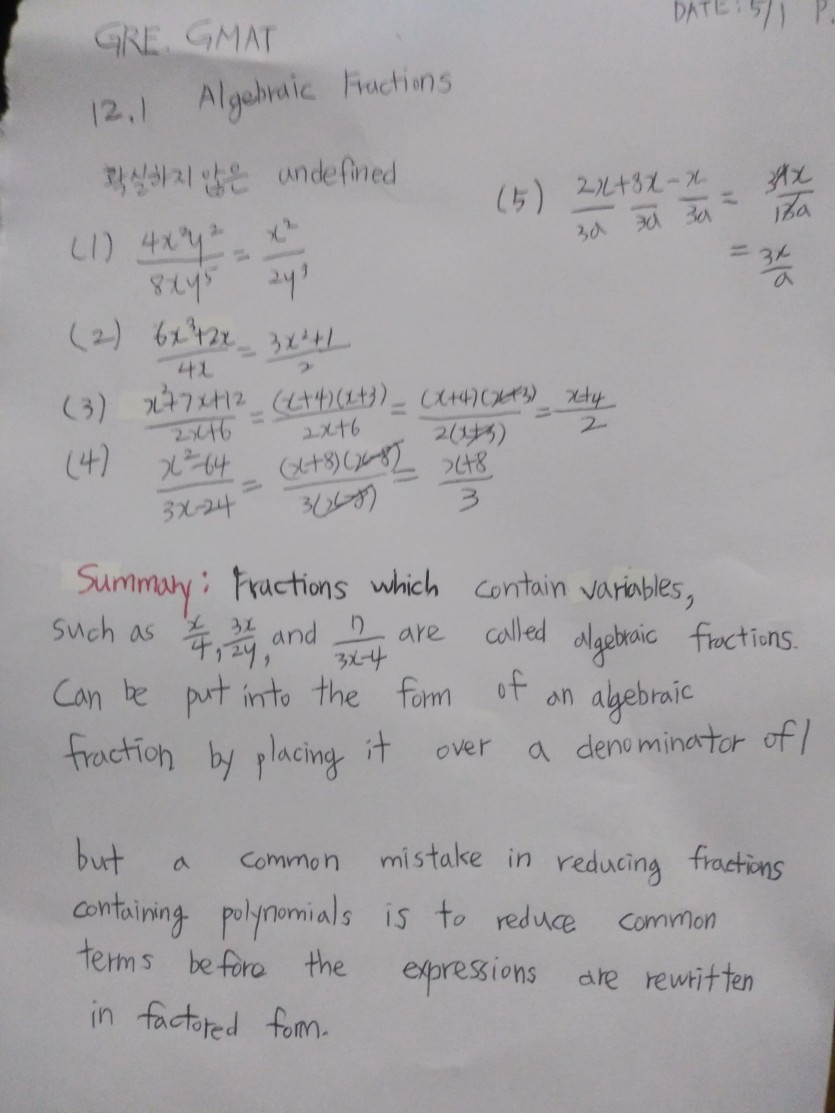 DATE: 5/1 P.
GRE. GMAT
12.1 Algebraic Fractions
확실하지 않은 undefined
(1) 4x³y²/8xy⁵ = x²/2y³
(5) 2x/3a + 8x/3a - x/3a =
= 3x/a
(2) 6x³+2x/4x = 3x²+1/2
(3) x²+7x+12/2x+6 = (x+4)(x+3)/2x+6 = (x+4)(x+3)/2(x+3) = x+4/2
(4) x²-64/3x-24 = (x+8)(x-8)/3(x-8) = x+8/3
Summary: Fractions which contain variables,
such as x/4, 3x/2y, and 7/3x-4 are called algebraic fractions.
Can be put into the form of an algebraic
fraction by placing it over a denominator of 1
but a common mistake in reducing fractions
containing polynomials is to reduce common
terms before the expressions are rewritten
in factored form.